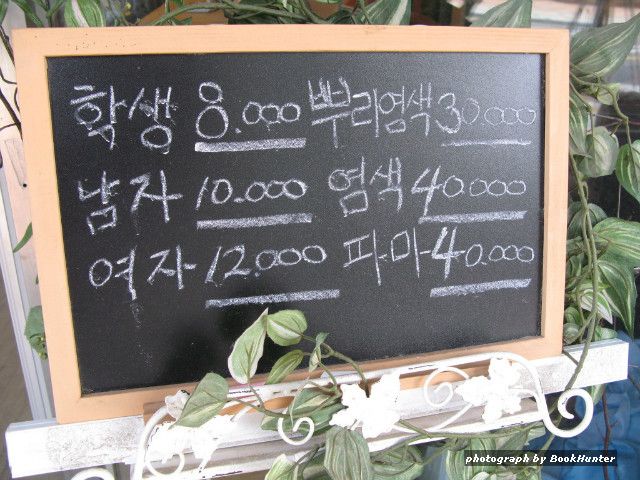 학생 8.000 뿌리염색 30.000
남자 10.000 염색 40.000
여자 12.000 파마 40.000
photograph by BookHunter